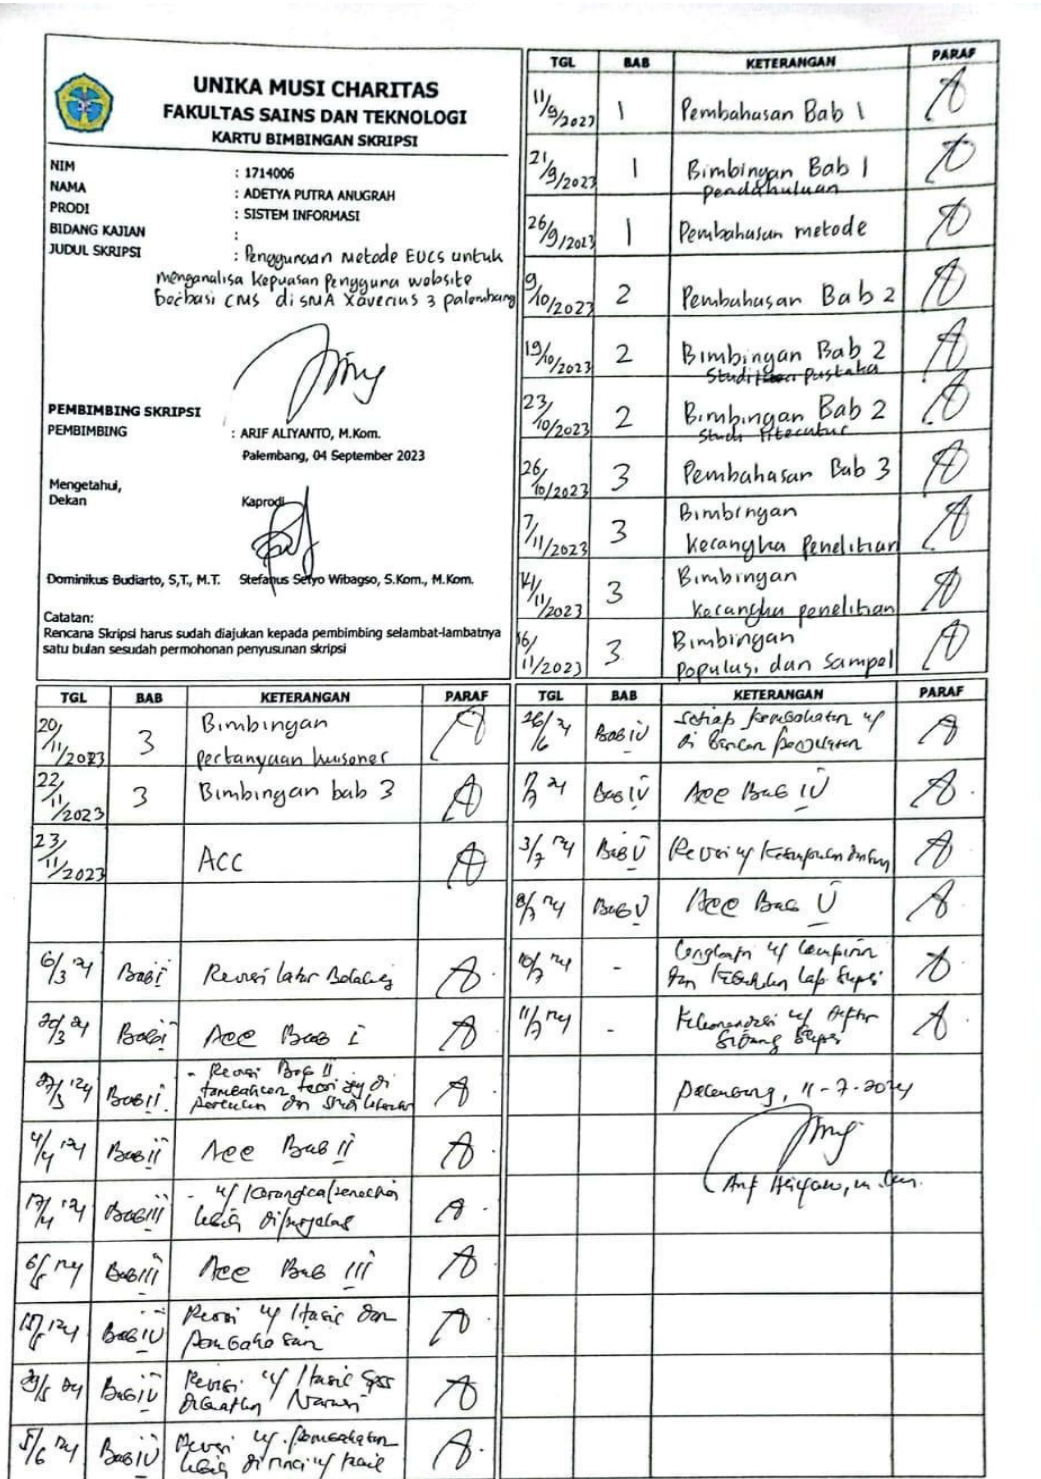 UNIKA MUSI CHARITAS
FAKULTAS SAINS DAN TEKNOLOGI
KARTU BIMBINGAN SKRIPSI
NIM : 1714006
NAMA : ADETYA PUTRA ANUGRAH
PRODI : SISTEM INFORMASI
BIDANG KAJIAN :
JUDUL SKRIPSI : Penggunaan Metode EUCS untuk
menganalisa Kepuasan Pengguna website
berbasi CMS di SMA Xaverius 3 palembang
PEMBIMBING SKRIPSI
PEMBIMBING : ARIF ALIYANTO, M.Kom.
Palembang, 04 September 2023
Mengetahui,
Dekan Kaprodi
Dominikus Budiarto, S,T., M.T. Stefanus Setyo Wibagso, S.Kom., M.Kom.
Catatan:
Rencana Skripsi harus sudah diajukan kepada pembimbing selambat-lambatnya
satu bulan sesudah permohonan penyusunan skripsi
TGL BAB KETERANGAN PARAF
11/9/2023 1 Pembahasan Bab 1
21/9/2023 1 Bimbingan Bab 1
pendahuluan
26/9/2023 1 Pembahasan metode
9/10/2023 2 Pembahasan Bab 2
19/10/2023 2 Bimbingan Bab 2
Studi Pustaka
23/10/2023 2 Bimbingan Bab 2
Studi literatur
26/10/2023 3 Pembahasan Bab 3
7/11/2023 3 Bimbingan
kerangka Penelitian
14/11/2023 3 Bimbingan
kerangka penelitian
16/11/2023 3 Bimbingan
Populasi dan Sampel
TGL BAB KETERANGAN PARAF
20/11/2023 3 Bimbingan
pertanyaan kuisoner
22/11/2023 3 Bimbingan bab 3
23/11/2023 ACC
6/3 '24 Bab I Revisi latar Belakang
20/3 24 Bab I Acc Bab I
27/3 '24 Bab II - Revisi Bab II
tambahkan teori yg di
4/4 '24 Bab II Acc Bab II
17/4 '24 Bab III - u/ Kerangka
lebih diperjelas
6/5 '24 Bab III Acc Bab III
'24 Bab IV Revisi u/ Hasil dan
pembahasan
29/5 24 Bab IV Revisi u/ Hasil
Narasi
5/6 '24 Bab IV Revisi u/ pembahasan
lebih dirinci u/
TGL BAB KETERANGAN PARAF
26/6 24 Bab IV Setiap pembahasan u/
di
1/7 24 Bab IV Acc Bab IV
3/7 '24 Bab V Revisi u/ Kesimpulan
8/7 '24 Bab V Acc Bab V
10/7 '24 - Lengkapi u/ lampiran
dan Lap. Skripsi
11/7 '24 - Rekomendasi u/ Daftar
Sidang Skripsi
Palembang, 11-7-2024
Arif Aliyanto, M.Kom.